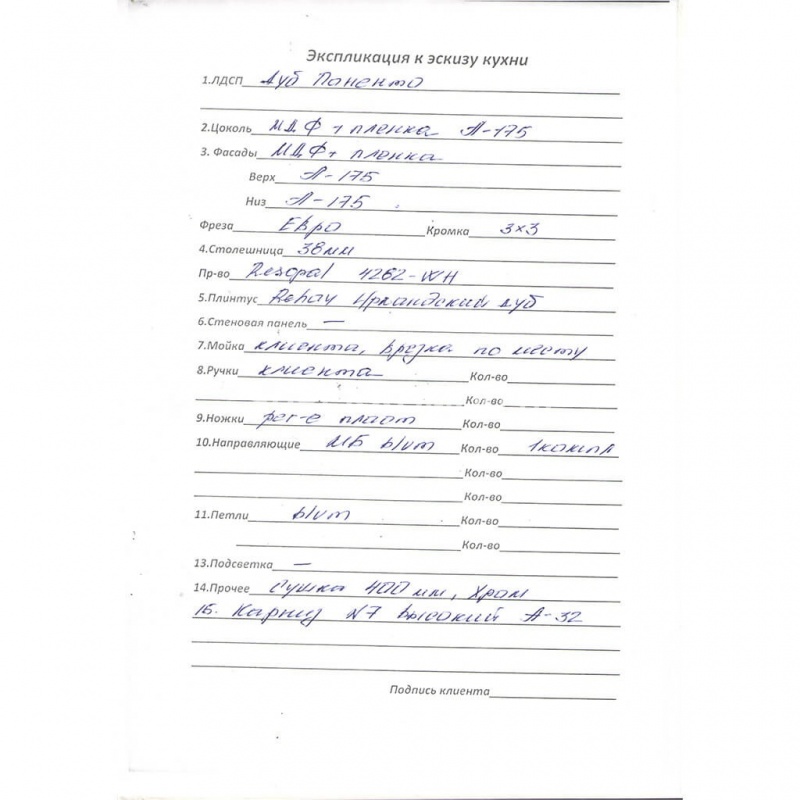 Экспликация к эскизу кухни
1.ЛДСП Дуб Паненто
2.Цоколь МДФ + пленка А-175
3. Фасады МДФ + пленка
Верх А-175
Низ А-175
Фреза Евро Кромка 3×3
4.Столешница 38мм
Пр-во Resopal 4262-WH
5.Плинтус Rehay Ирландский дуб
6.Стеновая панель —
7.Мойка клиента, врезка по месту
8.Ручки клиента Кол-во
Кол-во
9.Ножки рег-е пласт Кол-во
10.Направляющие МБ blum Кол-во 1компл
Кол-во
Кол-во
11.Петли blum Кол-во
Кол-во
13.Подсветка —
14.Прочее Сушка 400 мм, Хром
15. Карниз №7 высокий А-32
Подпись клиента